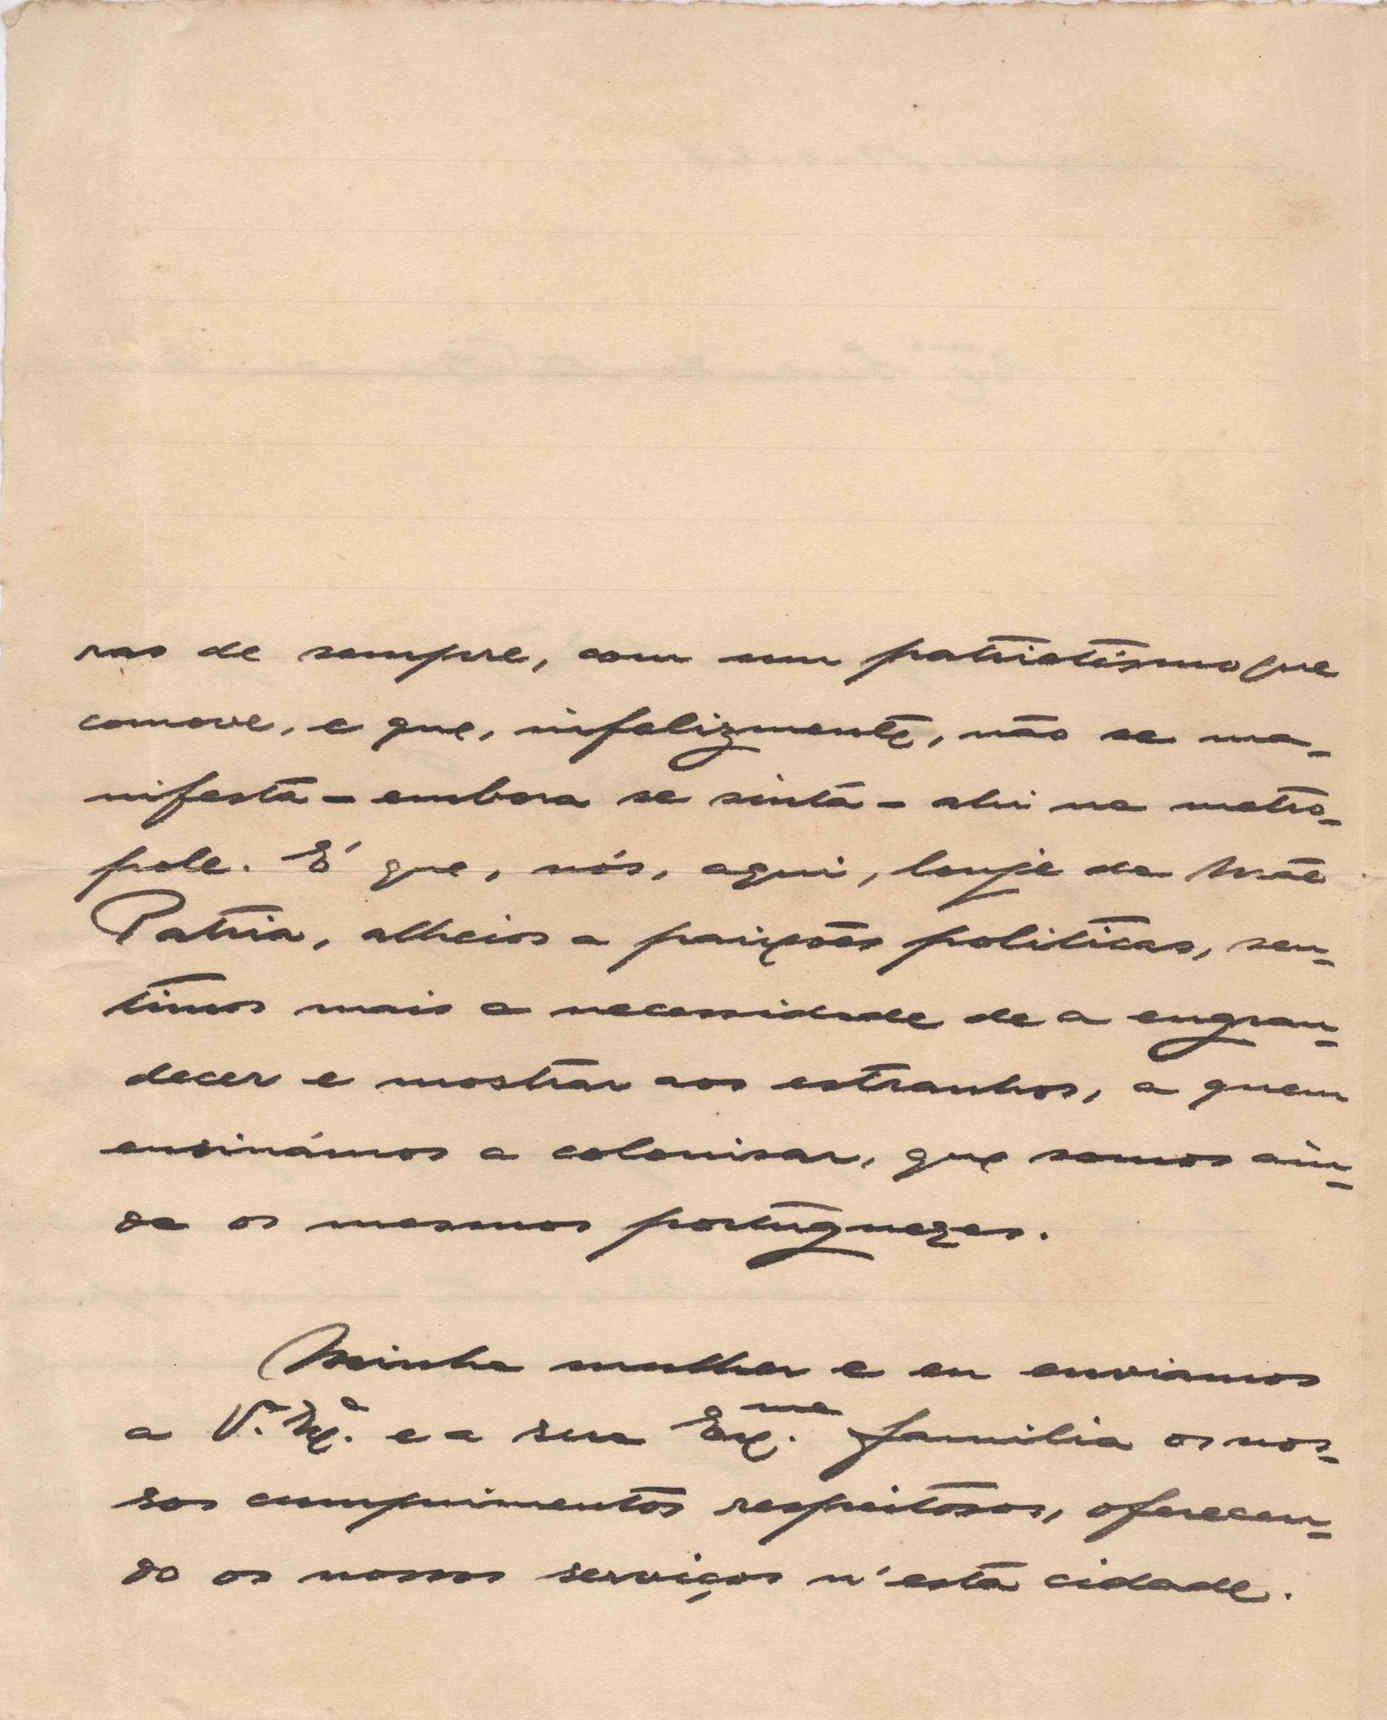 ras de sempre, com um patriotismo que
comove, e que, infelizmente, não se ma-
nifesta - embora se sinta - ahi na metro-
pole. E' que, nós, aqui, lonje da Mãe
Patria, alheios a paixões politicas, sen-
timos mais a necessidade de a engran-
decer e mostrar aos estranhos, a quem
ensinámos a colonisar, que somos ain-
da os mesmos portuguezes.
Minha mulher e eu enviamos
a V. Ex.ª e a sua Ex.ma familia os nos-
sos cumprimentos respeitosos, oferecen-
do os nossos serviços n'esta cidade.